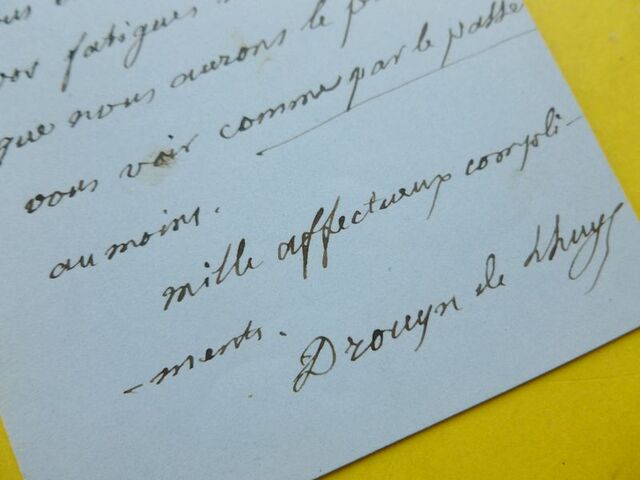 vos fatigues
que nous aurons le
vous voir comme par le passé
au moins.
mille affectueux compli-
-ments.
Drouyn de Lhuys